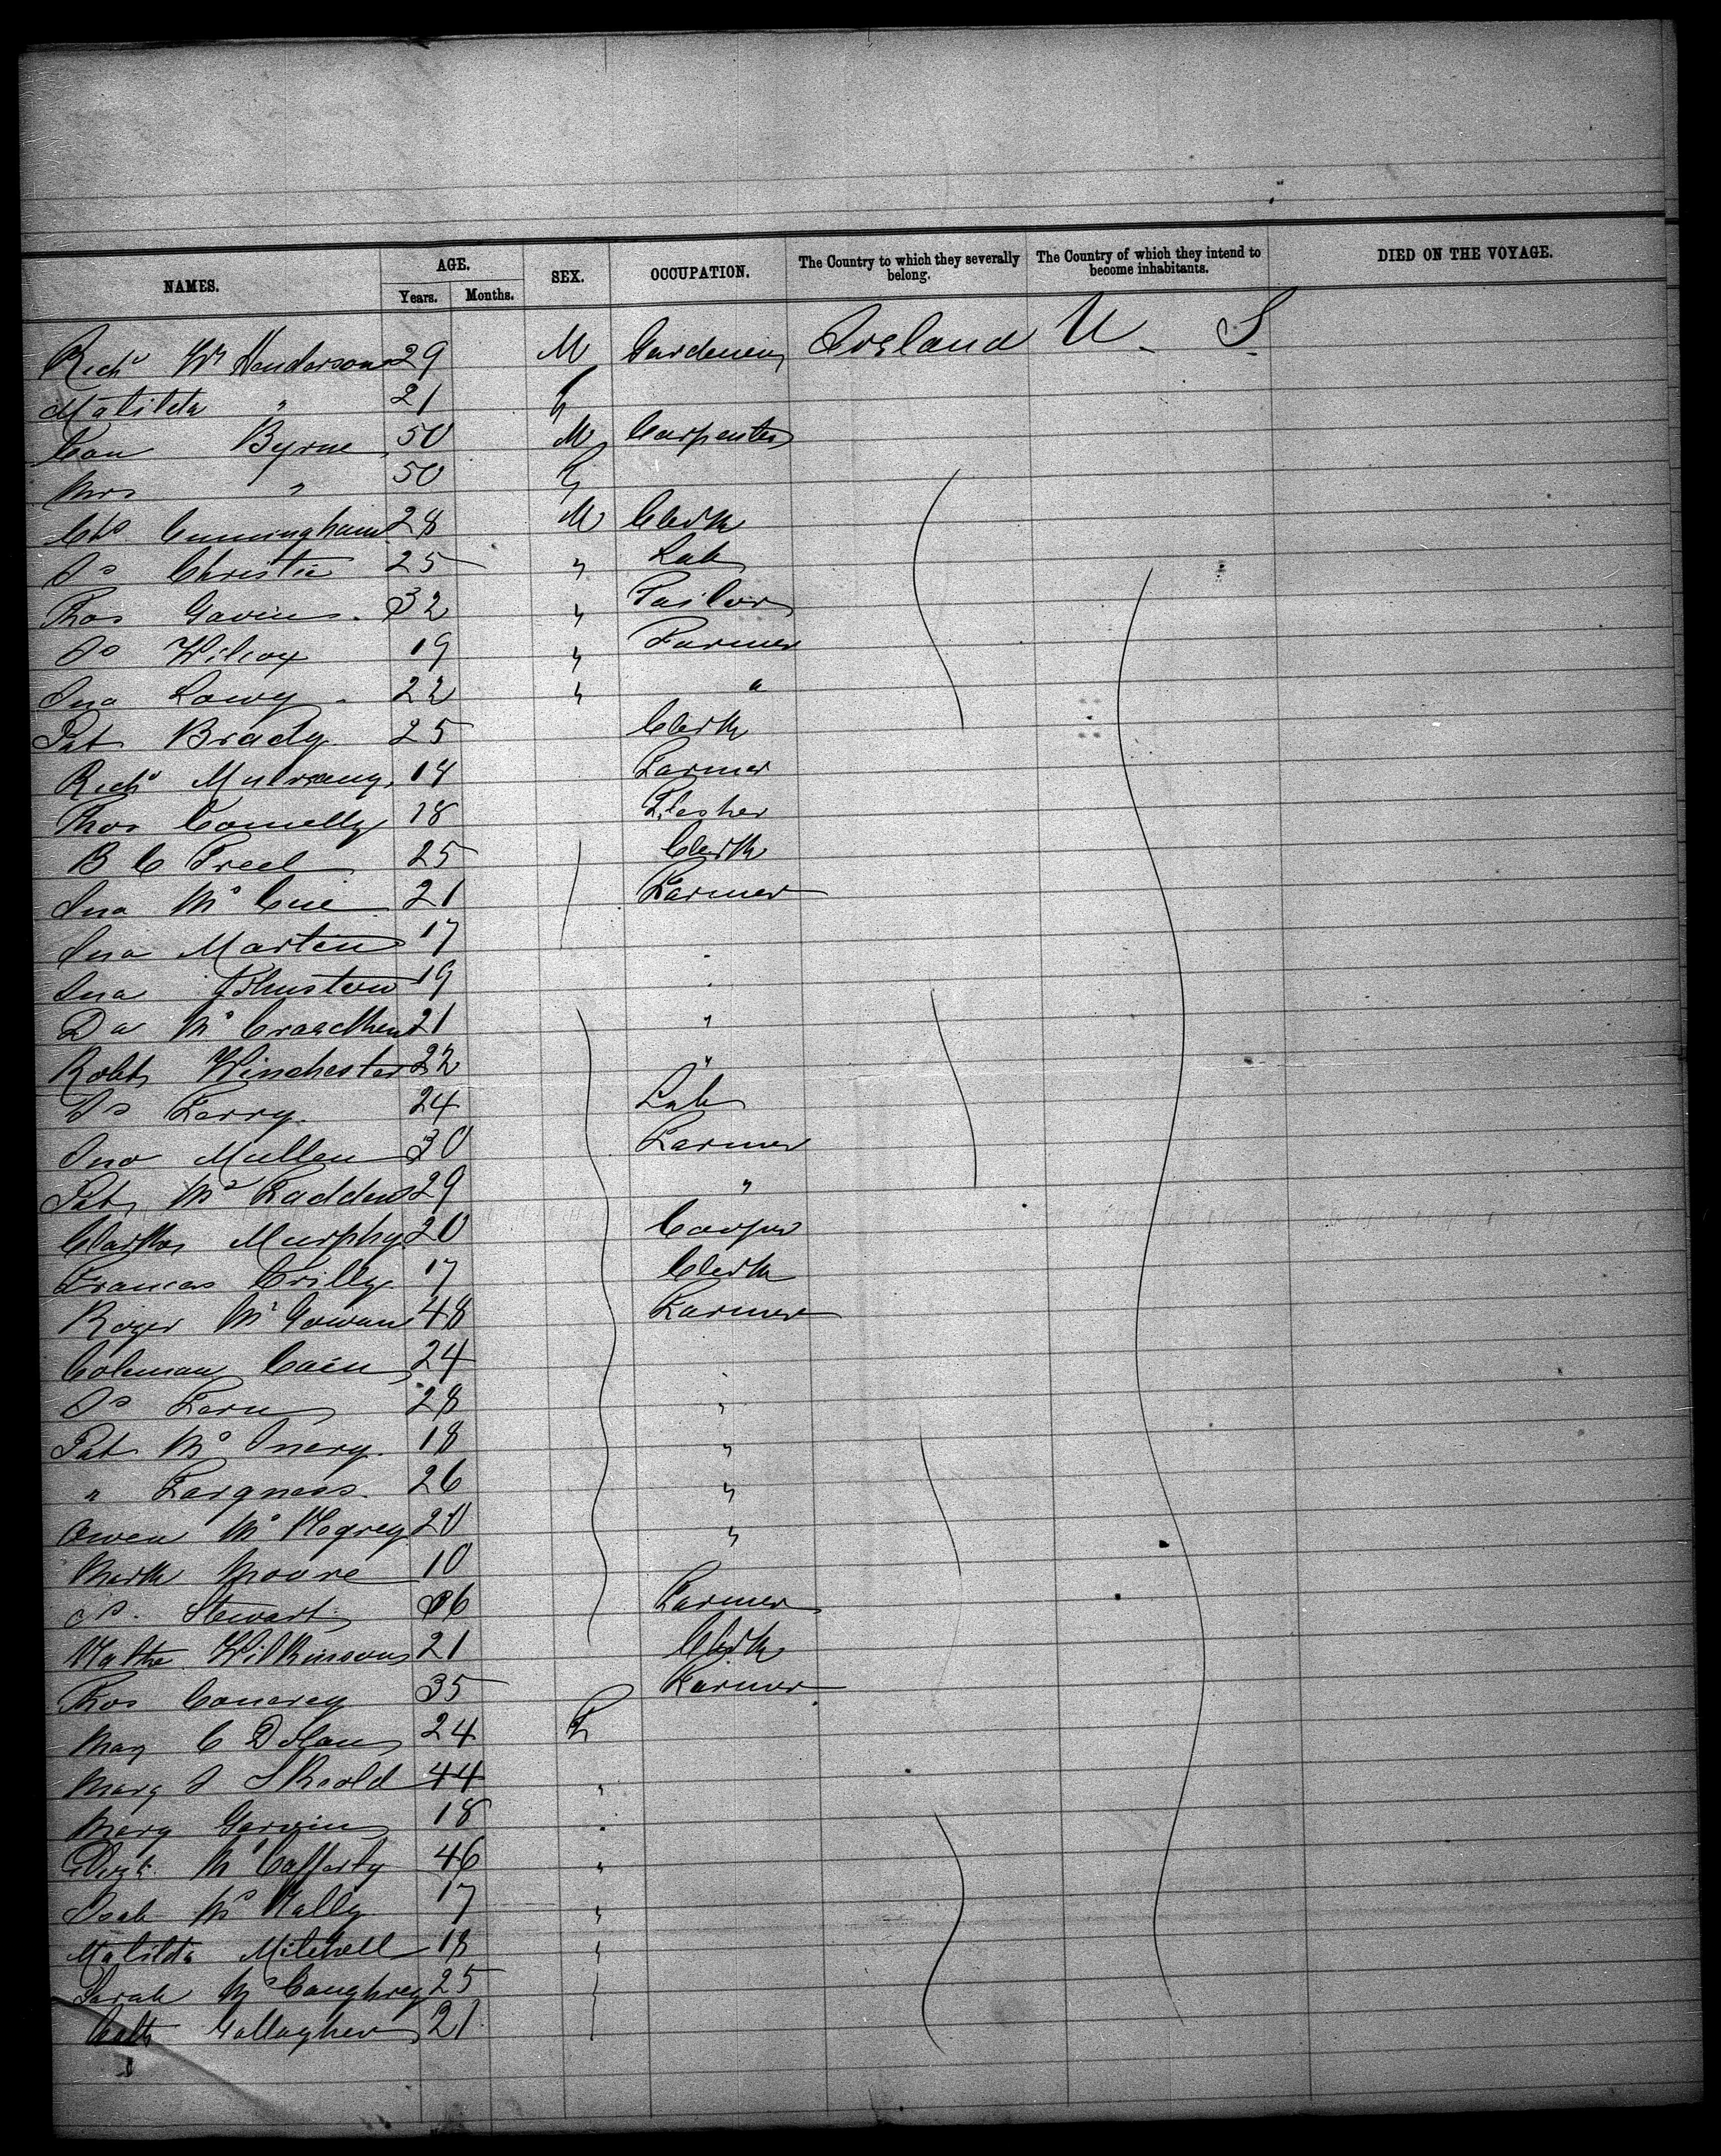 NAMES. AGE. Years. Months. SEX. OCCUPATION. The Country to which they severally belong. The Country of which they intend to become inhabitants. DIED ON THE VOYAGE.
Richd Wm Henderson 29 M Gardener Ireland U. S.
Matilda " 21 F
Con Byrne 50 M Carpenter
Mrs " 50 F
Chs Cunningham 28 M Clerk
Js Christie 25 " Lab
Thos Gavin 32 " Tailor
Js Wilcox 19 " Farmer
Jno Lowry 22 " "
Pat Brady 25 Clerk
Richd Mulvany 14 Farmer
Thos Connelly 18 Flesher
B C Freel 25 Clerk
Jno Mc Cue 21 Farmer
Jno Martin 17 "
Jno Johnston 19 "
Da Mc 21 "
Robt Winchester 22 "
Js Ferry 24 Lab
Jno Mullen 30 Farmer
Pat Mc Fadden 29 "
Murphy 20 Cooper
Francis Crilly 17 Clerk
Roger Mc Gowan 48 Farmer
Coleman Cain 24 "
Js 28 "
Pat Mc 18 "
" 26 "
Owen Mc 20 "
Moore 10
Js. Stewart 06 Farmer
Wilkinson 21 Clerk
Thos 35 Farmer
May C Dolan 24 F
Mary J 44 "
Mary 18 "
Mc Cafferty 46 "
Mc Nally 17 "
Matilda Mitchell 18 "
Sarah Mc Caughrey 25
Cath Gallagher 21